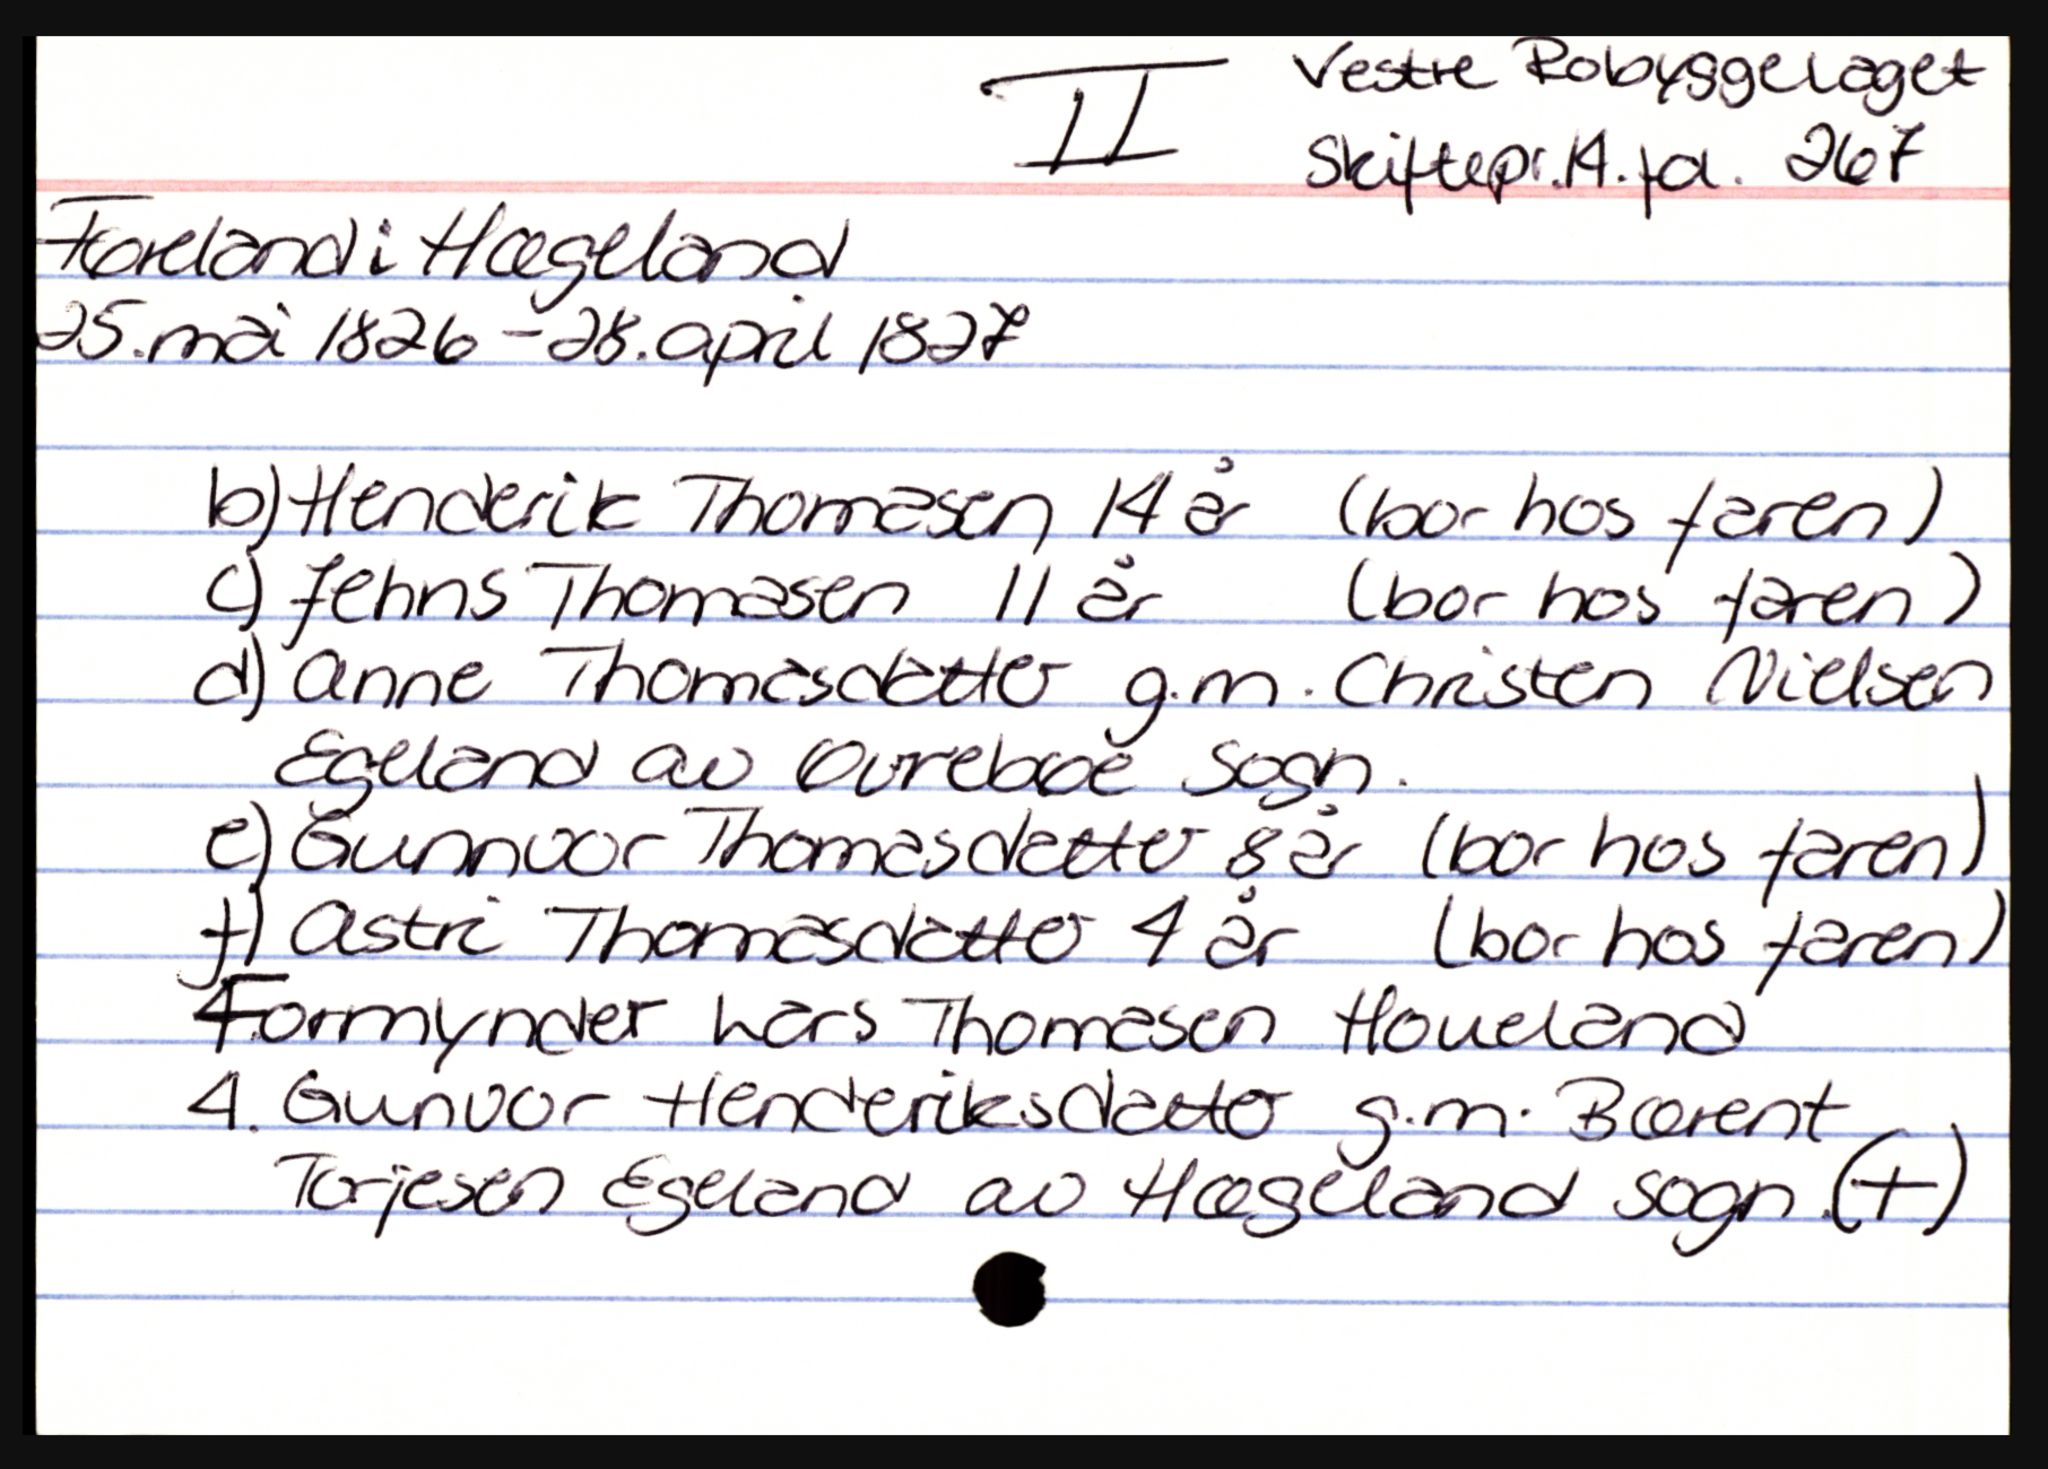 II
Vestre Robyggelaget
Skiftepr. 14. fol. 267
Foreland i Hægeland
25. mai 1826 - 28. april 1827
b) Henderik Thomasen 14 år (bor hos faren)
c) Jehns Thomasen 11 år (bor hos faren)
d) Anne Thomasdatter g.m. Christen Nielsen
Egeland av Øvreboe Sogn.
e) Gunnvor Thomasdatter 8 år (bor hos faren)
f) Astri Thomasdatter 4 år (bor hos faren)
Formynder Lars Thomasen Houeland
4. Gunvor Henderiksdatter g.m. Bærent
Torjesen Egeland av Hægeland sogn. (+)